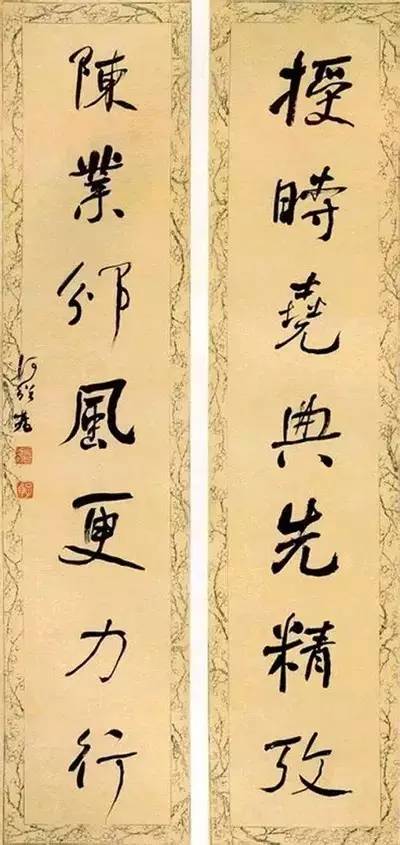 授時堯典先精攷
陳業邠風更力行
何紹基